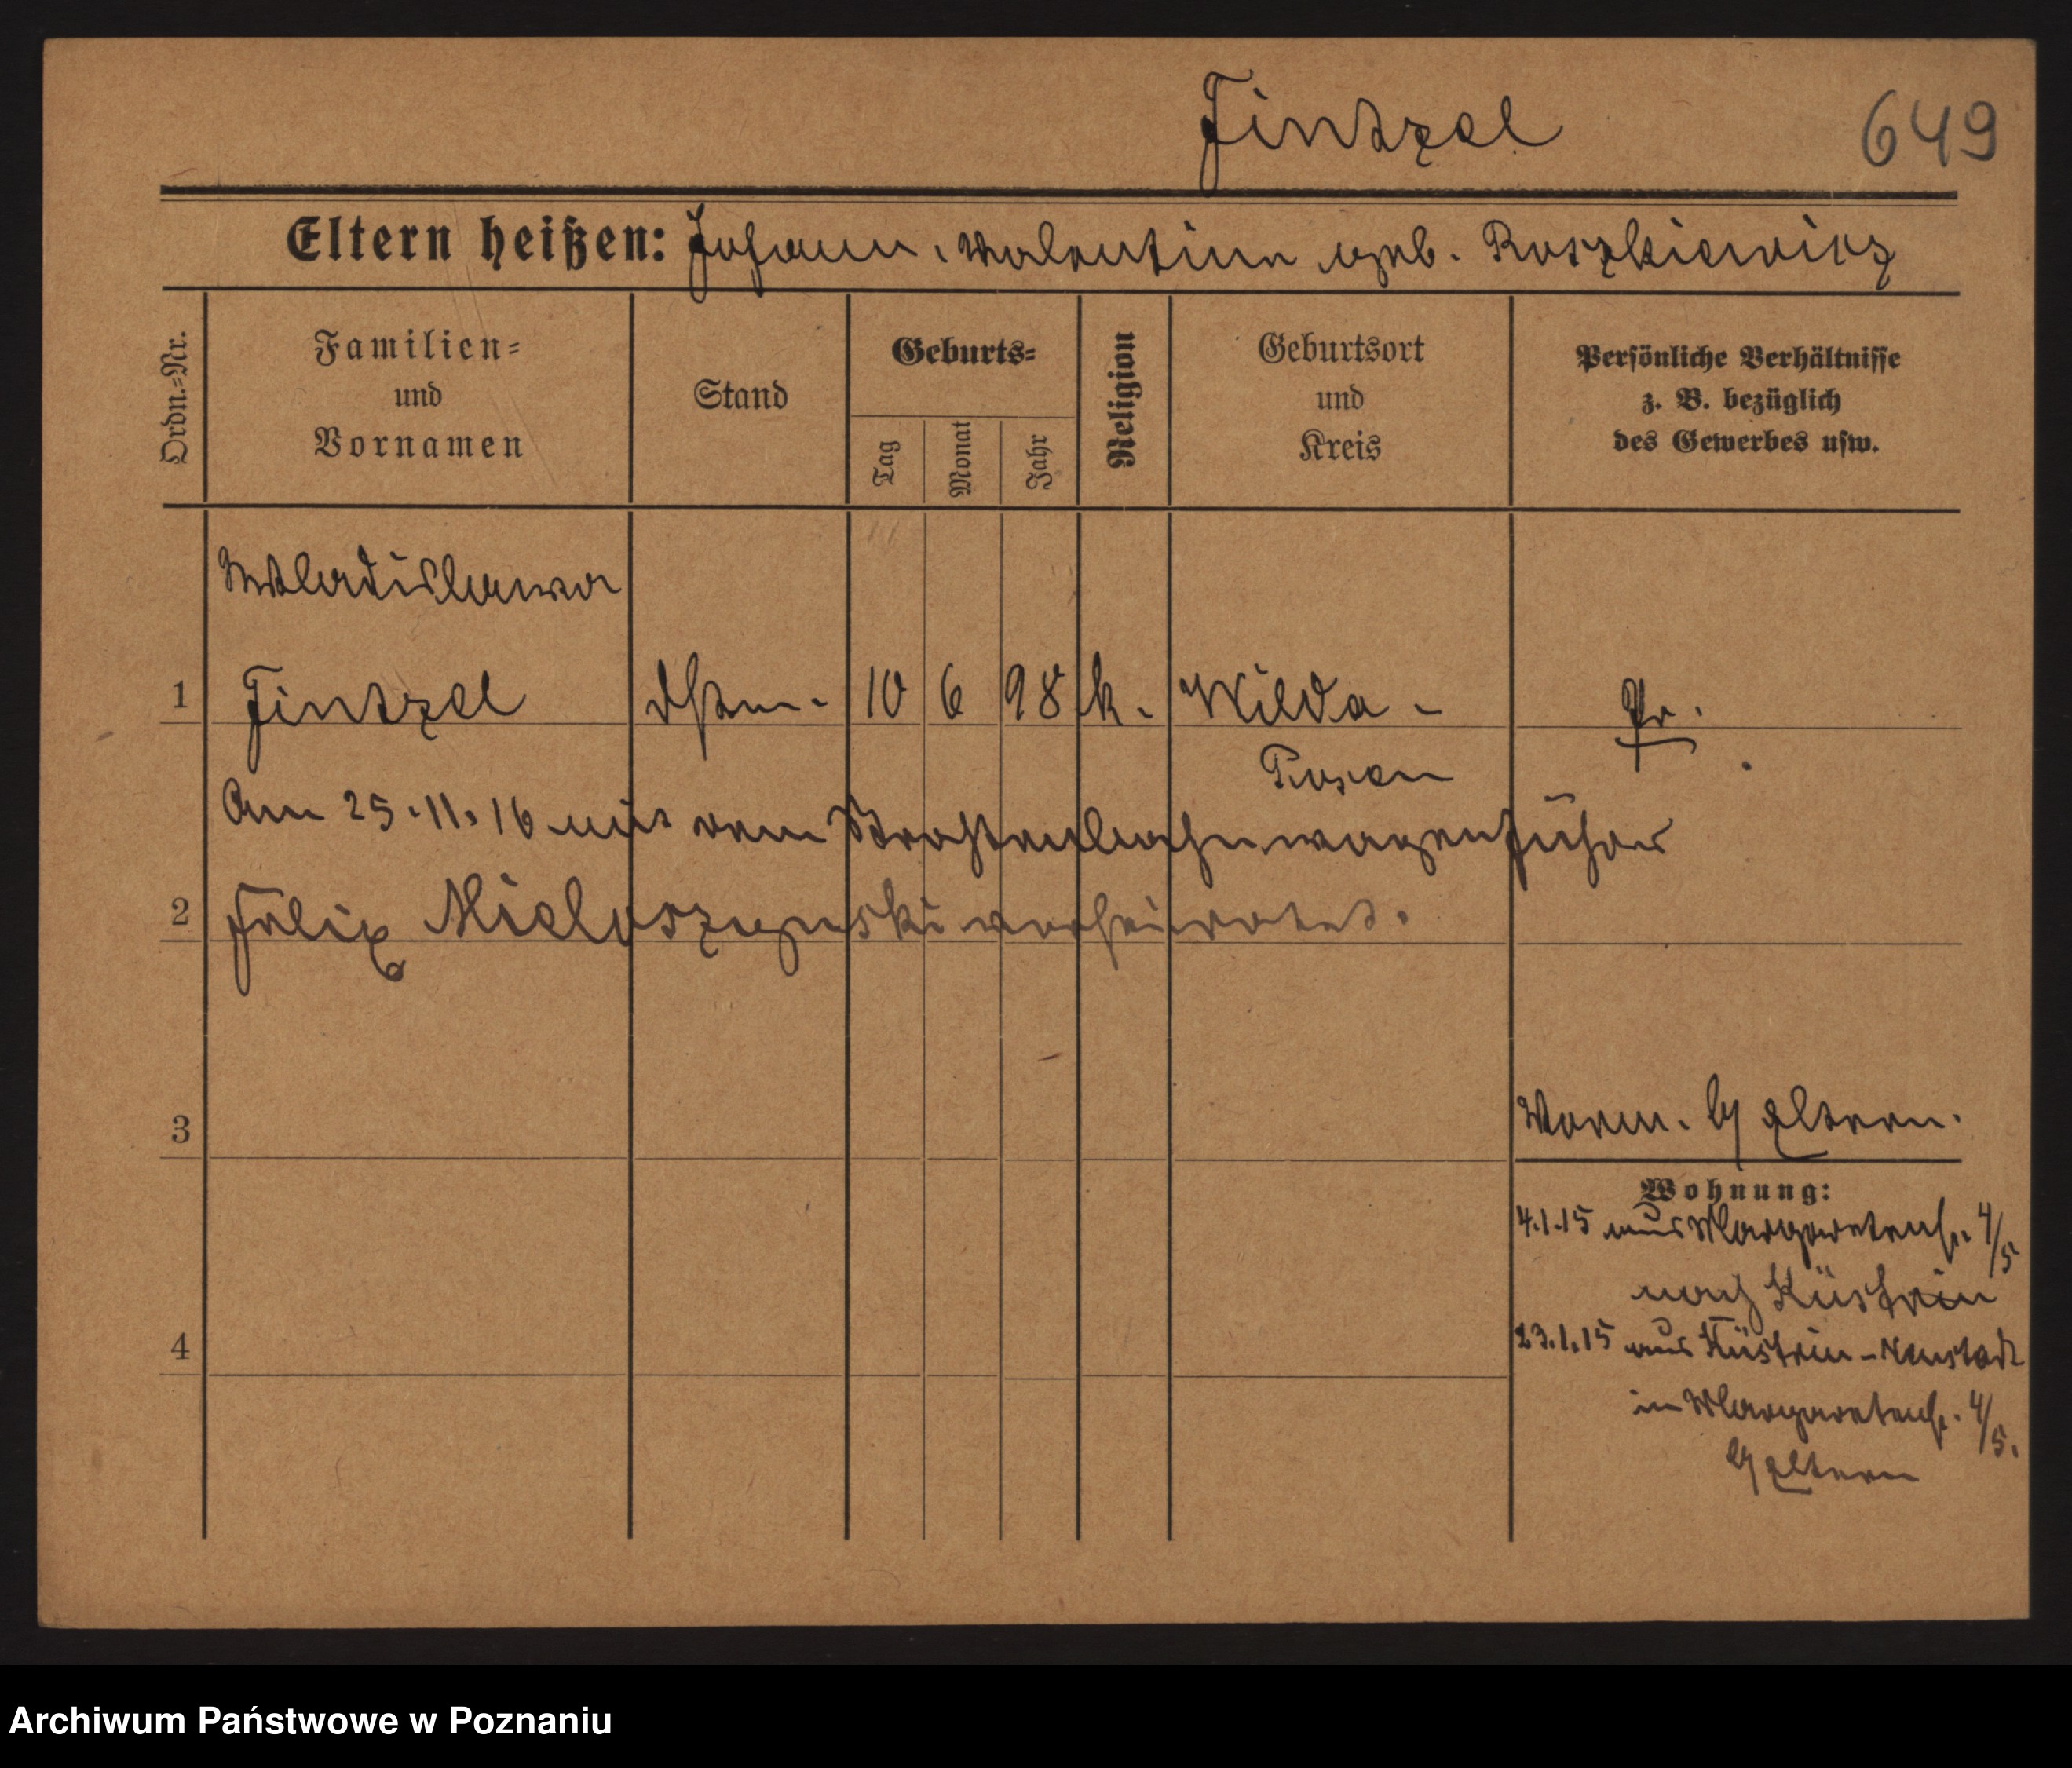 Fintzel 649
Eltern heißen: Johann, Valentina geb. Roszkiewicz
Ordn.=Nr.
Familien=
und
Vornamen
Stand
Geburts=
Tag
Monat
Jahr
Religion
Geburtsort
und
Kreis
Persönliche Verhältnisse
z. B. bezüglich
des Gewerbes usw.
Wladislawa
1 Fintzel 10 6 98 k. Wilda -
Pr.
Posen
Am 25.11.16 mit dem Straßenbahnwagenführer
2 Felix verheiratet.
3 Eltern.
Wohnung:
4.1.15 aus Margaretenstr. 4/5
nach Küstrin
23.1.15 aus Küstrin-Neustadt
4
in Margaretenstr. 4/5.
Eltern
Archiwum Państwowe w Poznaniu